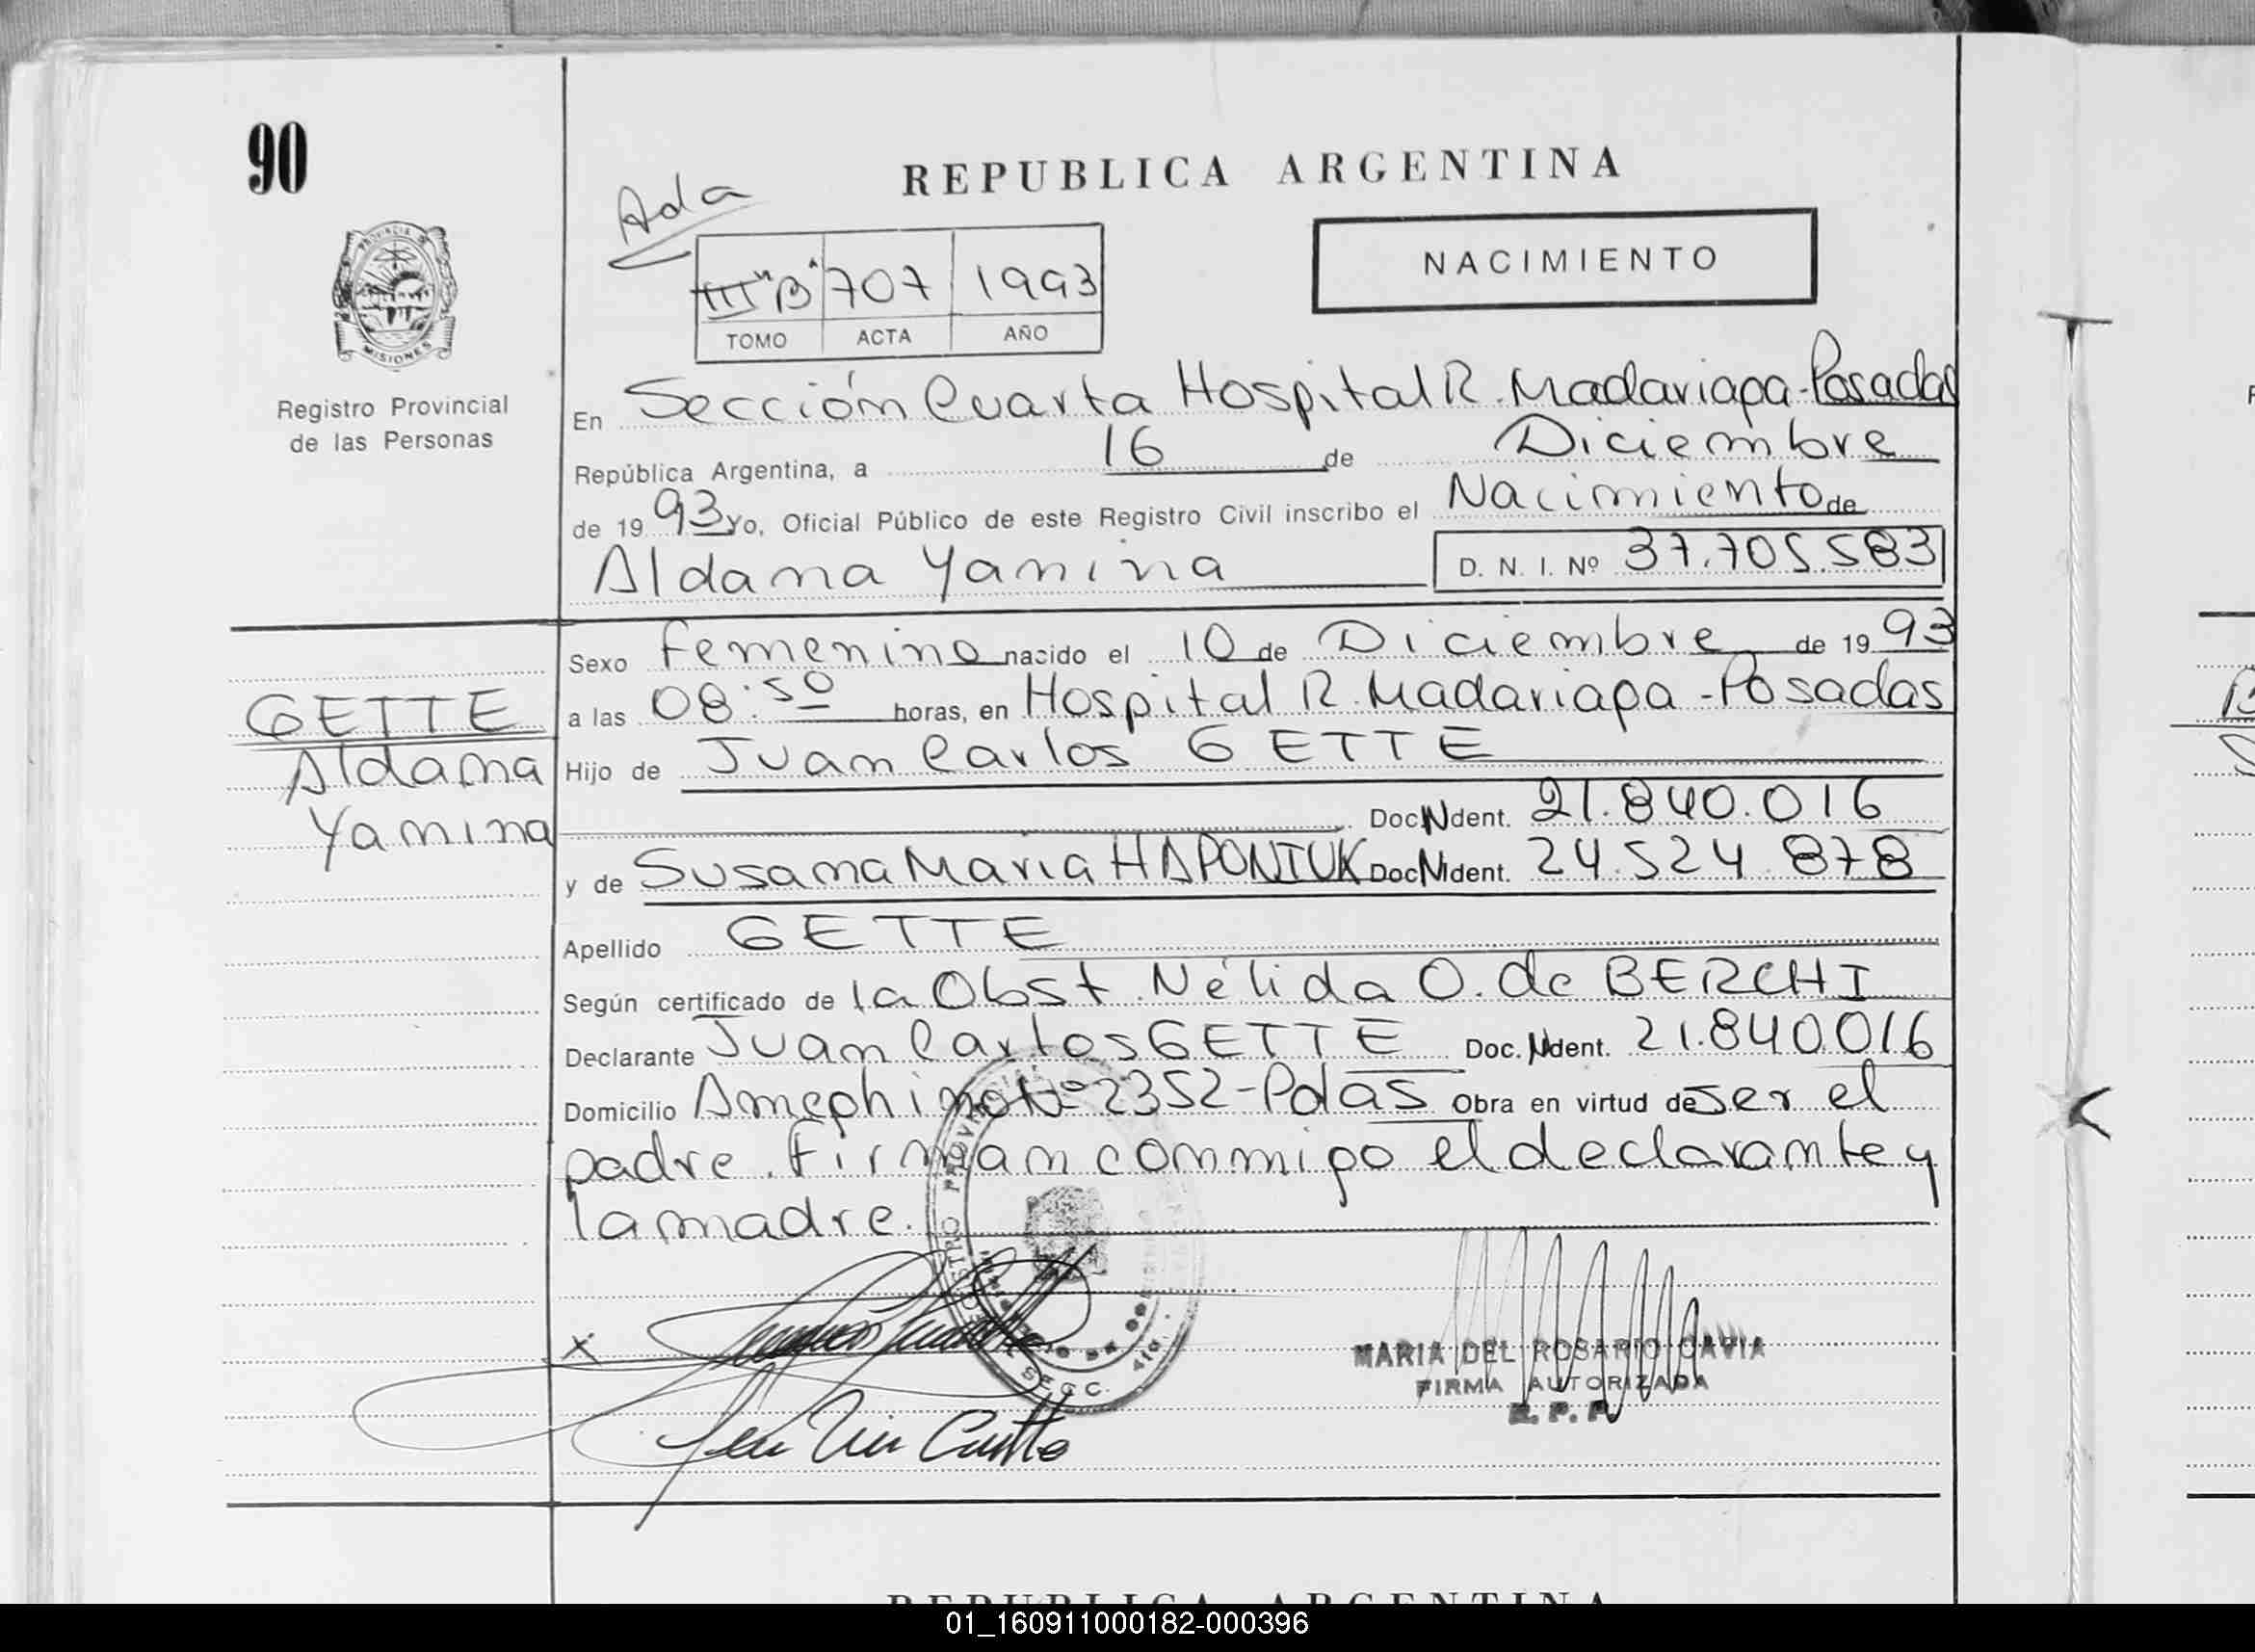 90
PROVINCIA DE
MISIONES
Registro Provincial
de las Personas
REPUBLICA ARGENTINA
Ada
III "B" 707 1993
TOMO ACTA AÑO
NACIMIENTO
En Sección Cuarta Hospital R. Madariaga-Posadas
República Argentina, a 16 de Diciembre
de 1993 Yo, Oficial Público de este Registro Civil inscribo el Nacimiento de
Aldana Yanina D. N. I. Nº 37.705.583
Sexo femenino nacido el 10 de Diciembre de 1993
a las 08:50 horas, en Hospital R. Madariaga-Posadas
Hijo de Juan Carlos GETTE
Doc. Ident. 21.840.016
y de Susana Maria HAPONIUK Doc. Ident. 24.524.878
Apellido GETTE
Según certificado de la Obst. Nélida O. de BERCHI
Declarante Juan Carlos GETTE Doc. Ident. 21.840.016
Domicilio Ameghino Nº 2352-Pdas Obra en virtud de ser el
padre. Firman conmigo el declarante y
la madre.
GETTE
Aldana
Yanina
X
SECC. 4ta.
MARIA DEL ROSARIO GAVIA
FIRMA AUTORIZADA
R. P. P.
REPUBLICA ARGENTINA
01_160911000182-000396